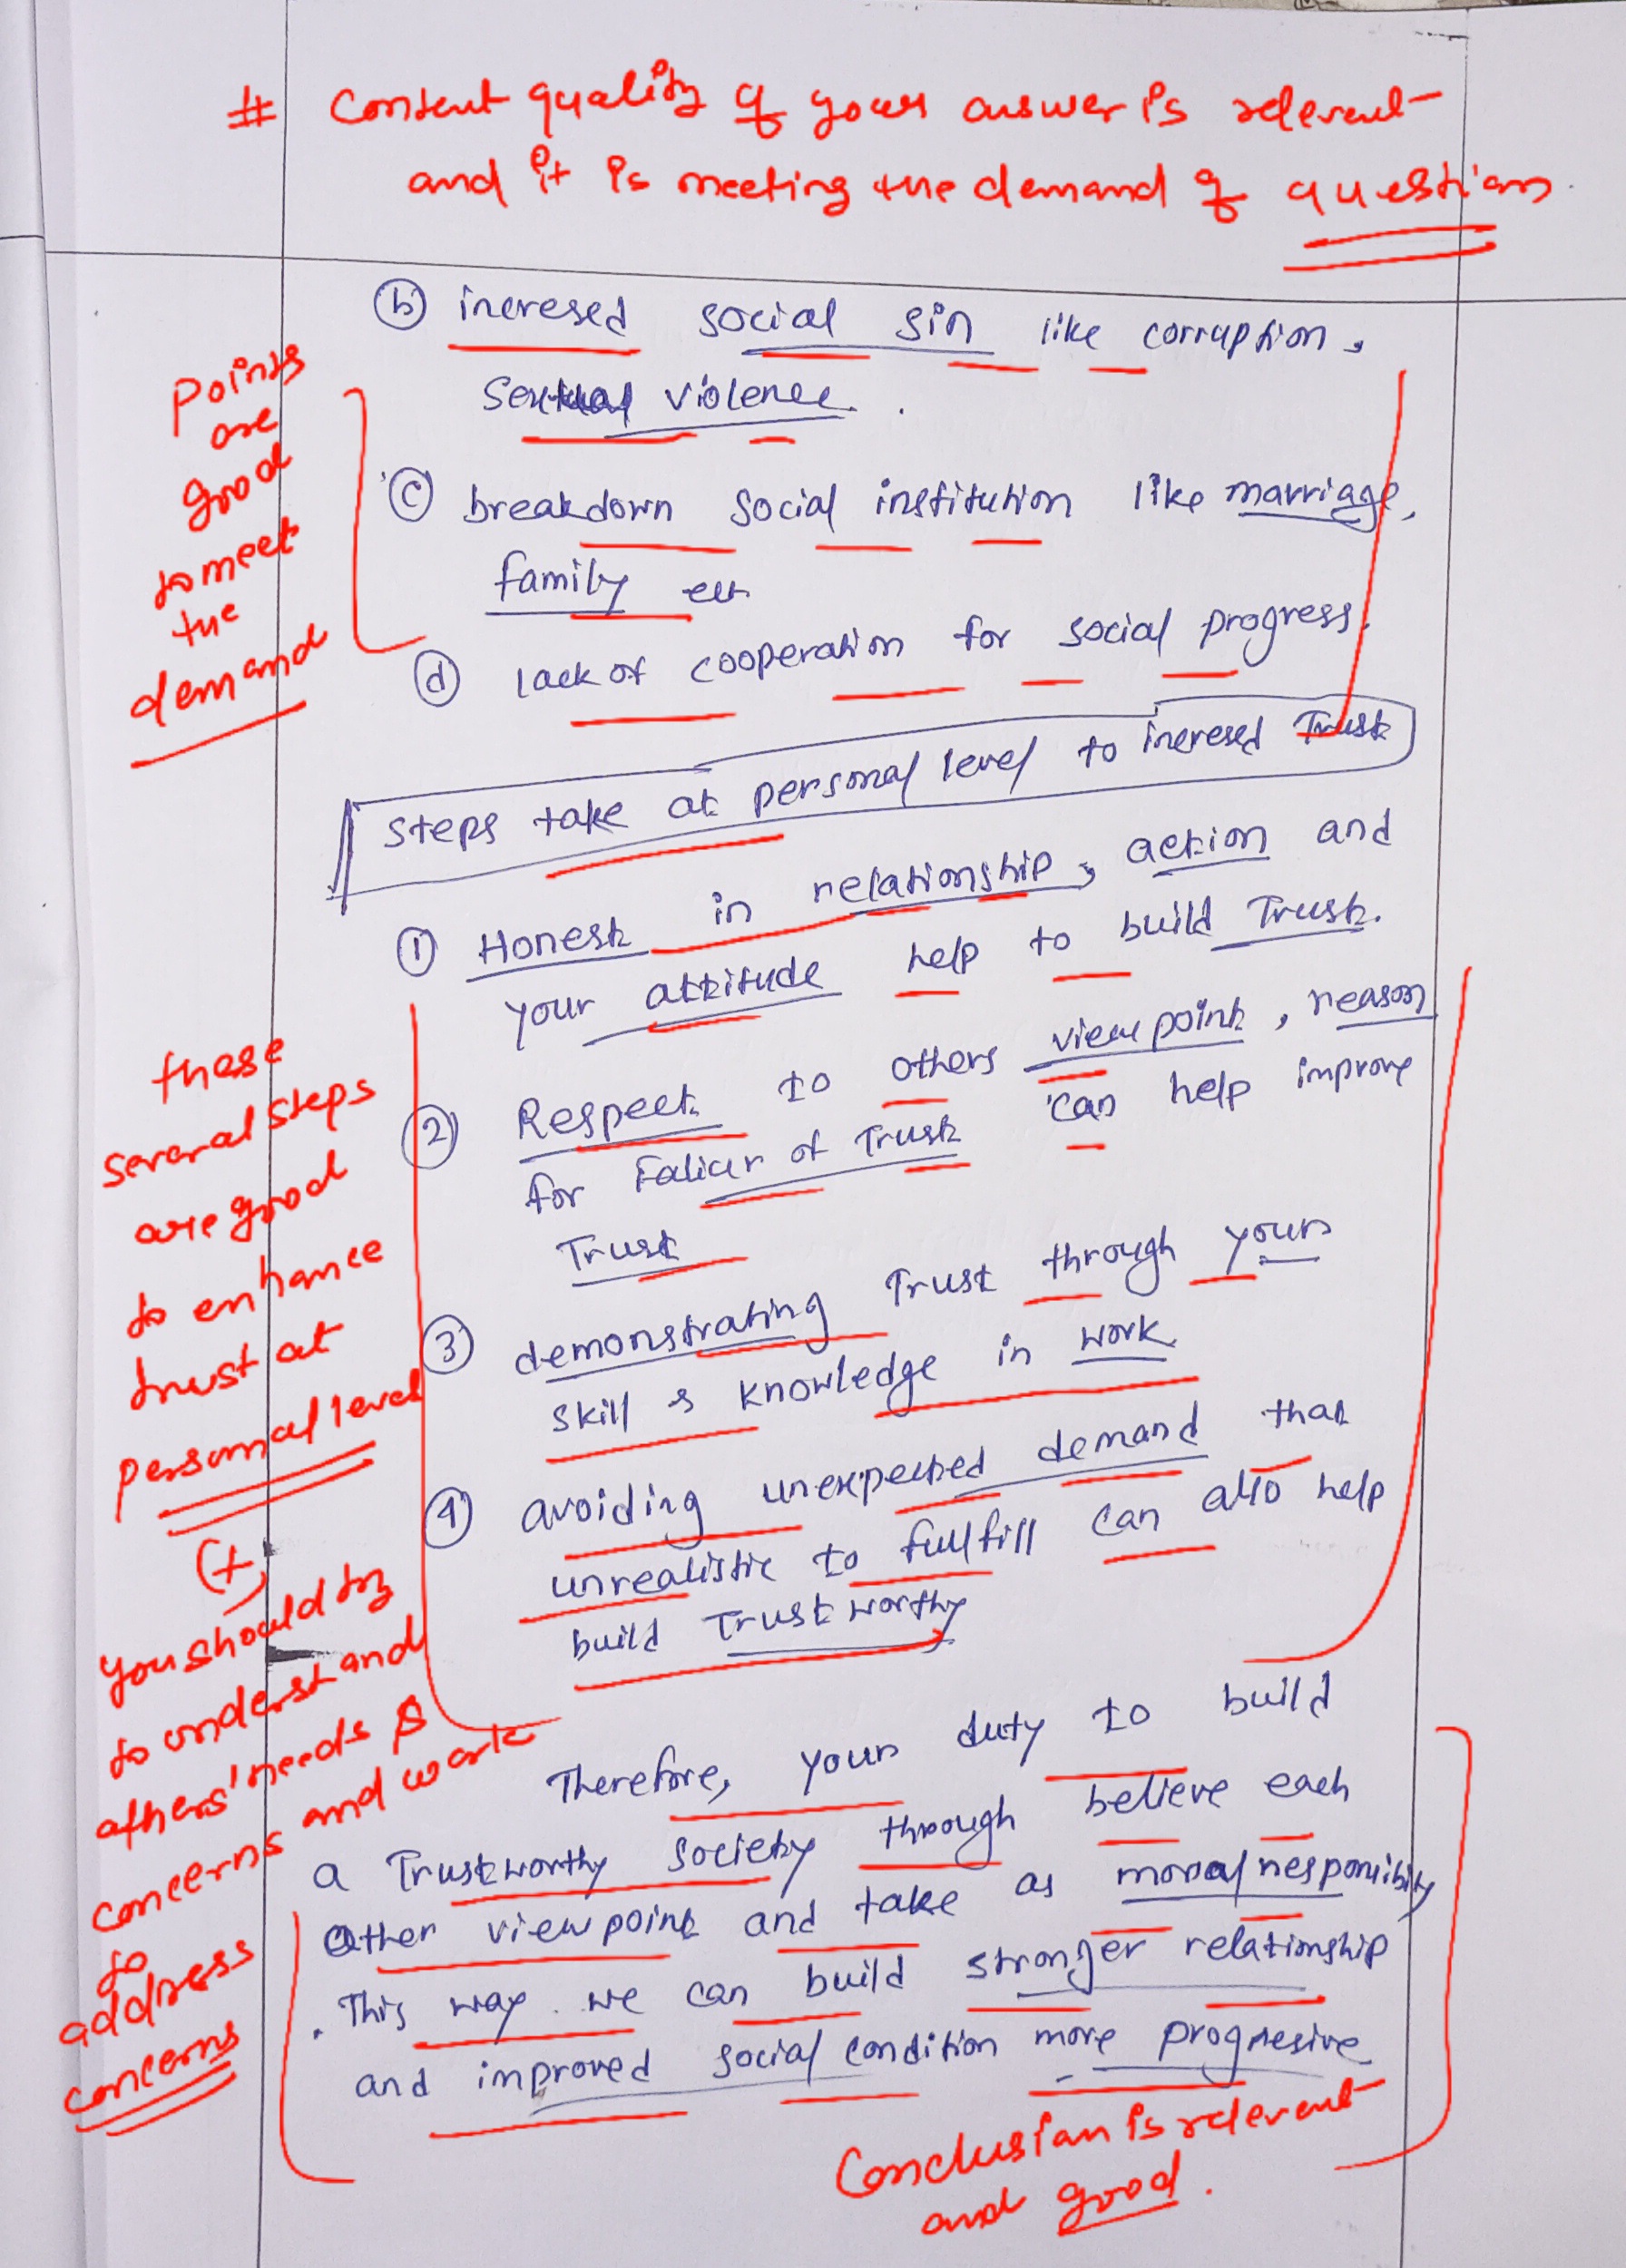 # Content quality of your answer is relevant
and it is meeting the demand of questions.
(b) incresed social sin like corruption,
Sexual violence.
(c) breakdown social institution like marriage,
family etc
(d) lack of cooperation for social progress.
Points
are
good
to meet
the
demand
Steps take at personal level to incresed Trust
(1) Honest in relationship, action and
your attitude help to build Trust.
(2) Respect to others view point, reason
for of Trust can help improve
Trust
(3) demonstrating Trust through your
skill & knowledge in work
(4) avoiding unexpected demand that
unrealistic to fullfill can also help
build Trustworthy
these
several steps
are good
to enhance
trust at
personal level
(+)
you should try
to understand
others' needs &
concerns and work
to
address
concerns
Therefore, your duty to build
a Trustworthy society through believe each
other view point and take as moral responsibility
. This way we can build stronger relationship
and improved social condition more progresive
Conclusion is relevant
and good.